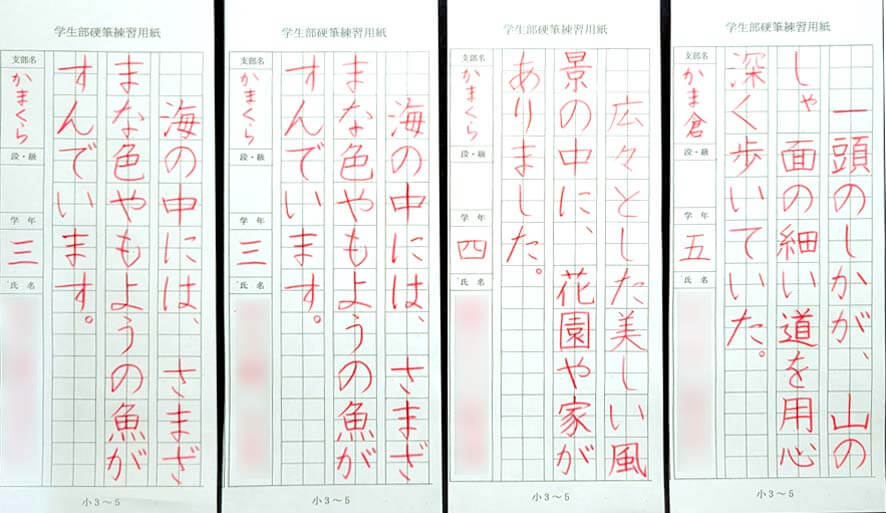 学生部硬筆練習用紙
海の中には、さまざ
まな色やもようの魚が
すんでいます。
支部名
かまくら
段・級
学年
三
氏名
学生部硬筆練習用紙
海の中には、さまざ
まな色やもようの魚が
すんでいます。
支部名
かまくら
段・級
学年
三
氏名
小3～5
学生部硬筆練習用紙
広々とした美しい風
景の中に、花園や家が
ありました。
支部名
かまくら
段・級
学年
四
氏名
小3～5
学生部硬筆練習用紙
一頭のしかが、山の
しゃ面の細い道を用心
深く歩いていた。
支部名
かま倉
段・級
学年
五
氏名
小3～5
小3～5